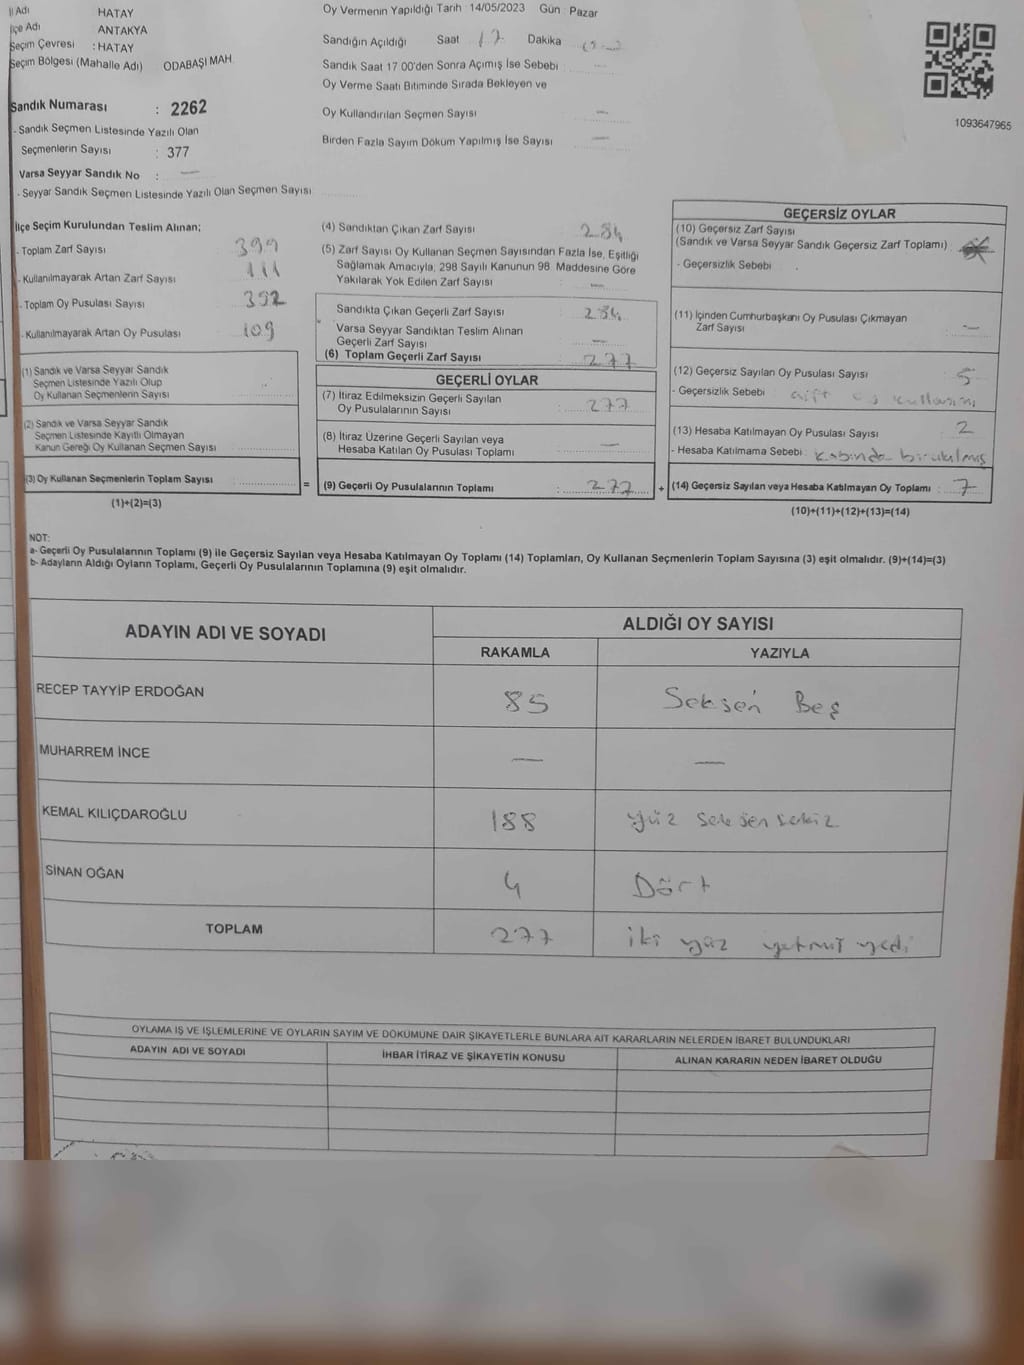 İl Adı HATAY
İlçe Adı ANTAKYA
Seçim Çevresi : HATAY
Seçim Bölgesi (Mahalle Adı) ODABAŞI MAH.
Sandık Numarası : 2262
- Sandık Seçmen Listesinde Yazılı Olan
Seçmenlerin Sayısı : 377
Varsa Seyyar Sandık No : —
- Seyyar Sandık Seçmen Listesinde Yazılı Olan Seçmen Sayısı
Oy Vermenin Yapıldığı Tarih : 14/05/2023 Gün : Pazar
Sandığın Açıldığı Saat 17 Dakika
Sandık Saat 17.00'den Sonra Açımış İse Sebebi
Oy Verme Saati Bitiminde Sırada Bekleyen ve
Oy Kullandırılan Seçmen Sayısı —
Birden Fazla Sayım Döküm Yapılmış İse Sayısı —
1093647965
İlçe Seçim Kurulundan Teslim Alınan;
- Toplam Zarf Sayısı 399
- Kullanılmayarak Artan Zarf Sayısı 111
- Toplam Oy Pusulası Sayısı 392
- Kullanılmayarak Artan Oy Pusulası 109
(1) Sandık ve Varsa Seyyar Sandık
Seçmen Listesinde Yazılı Olup
Oy Kullanan Seçmenlerin Sayısı
(2) Sandık ve Varsa Seyyar Sandık
Seçmen Listesinde Kayıtlı Olmayan
Kanun Gereği Oy Kullanan Seçmen Sayısı
(3) Oy Kullanan Seçmenlerin Toplam Sayısı : =
(1)+(2)=(3)
(4) Sandıktan Çıkan Zarf Sayısı 284
(5) Zarf Sayısı Oy Kullanan Seçmen Sayısından Fazla İse, Eşitliği
Sağlamak Amacıyla, 298 Sayılı Kanunun 98. Maddesine Göre
Yakılarak Yok Edilen Zarf Sayısı : —
Sandıkta Çıkan Geçerli Zarf Sayısı : 284
Varsa Seyyar Sandıktan Teslim Alınan
Geçerli Zarf Sayısı : —
(6) Toplam Geçerli Zarf Sayısı : 277
GEÇERLİ OYLAR
(7) İtiraz Edilmeksizin Geçerli Sayılan
Oy Pusulalarının Sayısı : 277
(8) İtiraz Üzerine Geçerli Sayılan veya
Hesaba Katılan Oy Pusulası Toplamı —
(9) Geçerli Oy Pusulalarının Toplamı : 277 +
GEÇERSİZ OYLAR
(10) Geçersiz Zarf Sayısı
(Sandık ve Varsa Seyyar Sandık Geçersiz Zarf Toplamı) :
- Geçersizlik Sebebi :
(11) İçinden Cumhurbaşkanı Oy Pusulası Çıkmayan
Zarf Sayısı : —
(12) Geçersiz Sayılan Oy Pusulası Sayısı : 5
- Geçersizlik Sebebi : çift oy kullanımı
(13) Hesaba Katılmayan Oy Pusulası Sayısı : 2
- Hesaba Katılmama Sebebi : kabinde bırakılmış
(14) Geçersiz Sayılan veya Hesaba Katılmayan Oy Toplamı : 7
(10)+(11)+(12)+(13)=(14)
NOT:
a- Geçerli Oy Pusulalarının Toplamı (9) ile Geçersiz Sayılan veya Hesaba Katılmayan Oy Toplamı (14) Toplamları, Oy Kullanan Seçmenlerin Toplam Sayısına (3) eşit olmalıdır. (9)+(14)=(3)
b- Adayların Aldığı Oyların Toplamı, Geçerli Oy Pusulalarının Toplamına (9) eşit olmalıdır.
ADAYIN ADI VE SOYADI ALDIĞI OY SAYISI
RAKAMLA YAZIYLA
RECEP TAYYİP ERDOĞAN 85 Seksen Beş
MUHARREM İNCE — —
KEMAL KILIÇDAROĞLU 188 yüz seksen sekiz
SİNAN OĞAN 4 Dört
TOPLAM 277 iki yüz yetmiş yedi
OYLAMA İŞ VE İŞLEMLERİNE VE OYLARIN SAYIM VE DÖKÜMÜNE DAİR ŞİKAYETLERLE BUNLARA AİT KARARLARIN NELERDEN İBARET BULUNDUKLARI
ADAYIN ADI VE SOYADI İHBAR İTİRAZ VE ŞİKAYETİN KONUSU ALINAN KARARIN NEDEN İBARET OLDUĞU